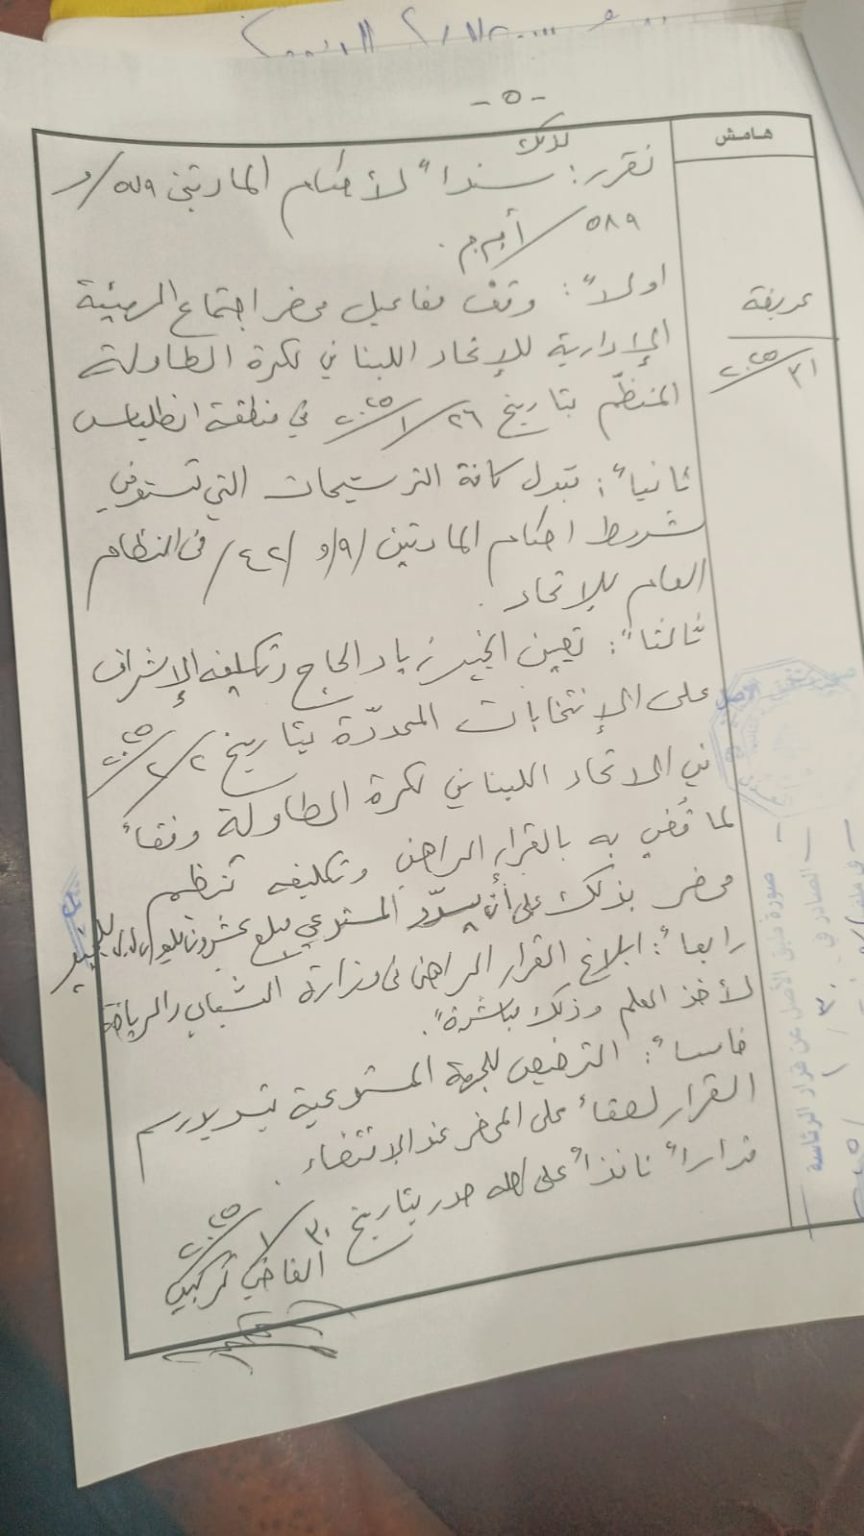 - ٥ -
هامش
لذلك
نقرر: سنداً لأحكام المادتين ٥٧٩/ و
٥٨٩/أ.م.م.
عريضة
٢٠٢٥/٣١
اولاً: وقف مفاعيل محضر اجتماع الهيئة
الإدارية للإتحاد اللبناني لكرة الطاولة
المنظّم بتاريخ ٢٦/١/٢٠٢٥ في منطقة انطلياس
ثانياً: قبول كافة الترشيحات التي تستوفي
شروط احكام المادتين /٩/ و /٤٢/ من النظام
العام للاتحاد.
ثالثاً: تعيين الخبير زياد الحاج وتكليفه الإشراف
على الإنتخابات المحدّدة بتاريخ ٢/٢/٢٠٢٥
في الاتحاد اللبناني لكرة الطاولة وفقاً
لما قُضي به بالقرار الراهن وتكليفه تنظيم
محضر بذلك على أن يسدّد المستدعي مبلغ عشرون مليون ل.ل. للخبير
رابعاً: ابلاغ القرار الراهن من وزارة الشباب والرياضة
لأخذ العلم وذلك مباشرةً.
خامساً: الترخيص للجهة المستدعية بتسديد رسم
القرار لصقاً على المحضر عند الاقتضاء.
قراراً نافذاً على أصله صدر بتاريخ ٣٠/١/٢٠٢٥
القاضي تركية
صورة طبق الأصل عن قرار الرئاسة
الصادر في ٣٠/١/